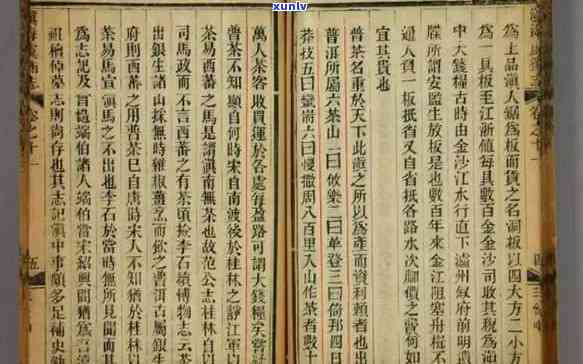 xunlv
滇海虞衡志
卷之十一
四
為上品滇人鋸為板而貨之名洞板以四大方二小
為一具板至江浙值每具數百金金沙司收其稅為
中大錢糧古時由金沙江水行直下瀘州叙府前明
牒所謂安監生放板是也數百年來金江阻塞舟楫不
通人負一板抵省又自省抵各路水次腳價之費何如
宜其貴也
普茶名重於天下此滇之所以為產而資利賴者也出
普洱所屬六茶山一曰攸樂二曰革登三曰倚邦四曰
莽枝五曰蠻耑六曰慢撒周八百里入山作茶者數十
萬人茶客收買運於各處每盈路可謂大錢糧矣嘗疑
普茶不知顯自何時宋自南渡後於桂林之靜江軍以
茶易西蕃之馬是謂滇南無茶也故范公志桂林自以
司馬政而不言西蕃之有茶頃檢李石續博物志云茶
出銀生諸山採無時雜椒薑烹而飲之普洱古屬銀生
府則西蕃之用普茶已自唐時宋人不知猶於桂林以
茶易馬宜滇馬之不出也李石於當時無所見聞而其
為志記及曾慥端伯諸人端伯當宋紹興間猶為吾
祖檀倬墓志則尚存也其志記滇中事頗多足補史
滇海虞衡志
卷之十一
五